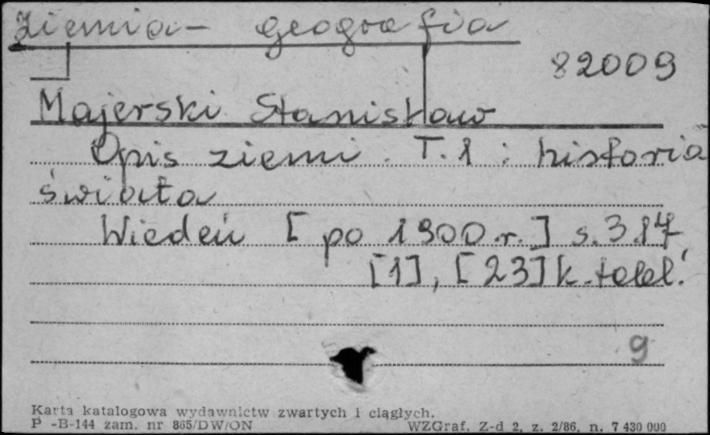 Ziemia - geografia
82009
Majerski Stanisław
Opis ziemi. T.1: historia
świata
Wiedeń [po 1900 r.] s. 317,
[1], [23] k. tabl.
9
Karta katalogowa wydawnictw zwartych i ciągłych.
P -B-144 zam. nr 865/DW/ON WZGraf. Z-d 2, z. 2/86, n. 7 430 000